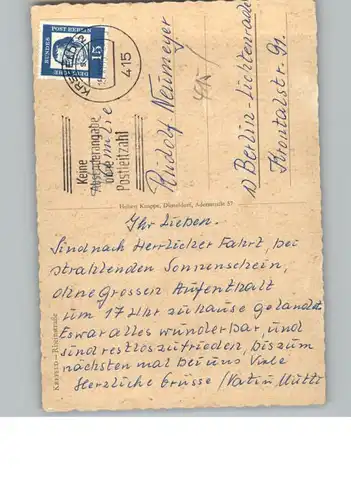 DEUTSCHE
BUNDES
POST BERLIN
15
KREFELD
415
Keine
Absenderangabe
ohne
Postleitzahl
Familie
Rudolf Neumeyer
Berlin-Lichtenrade
Fontalstr. 91.
Hubert Knuppe, Düsseldorf, Adersstraße 57
KREFELD – Rheinstraße
Ihr Lieben.
Sind nach Herrlicher Fahrt, bei
strahlenden Sonnenschein,
ohne Grossen Aufenthalt
um 17 Uhr zuhause gelandet
Es war alles wunderbar, und
sind restlos zufrieden, bis zum
nächsten mal bei uns Viele
Herzliche Grüsse / Vati u Mutti